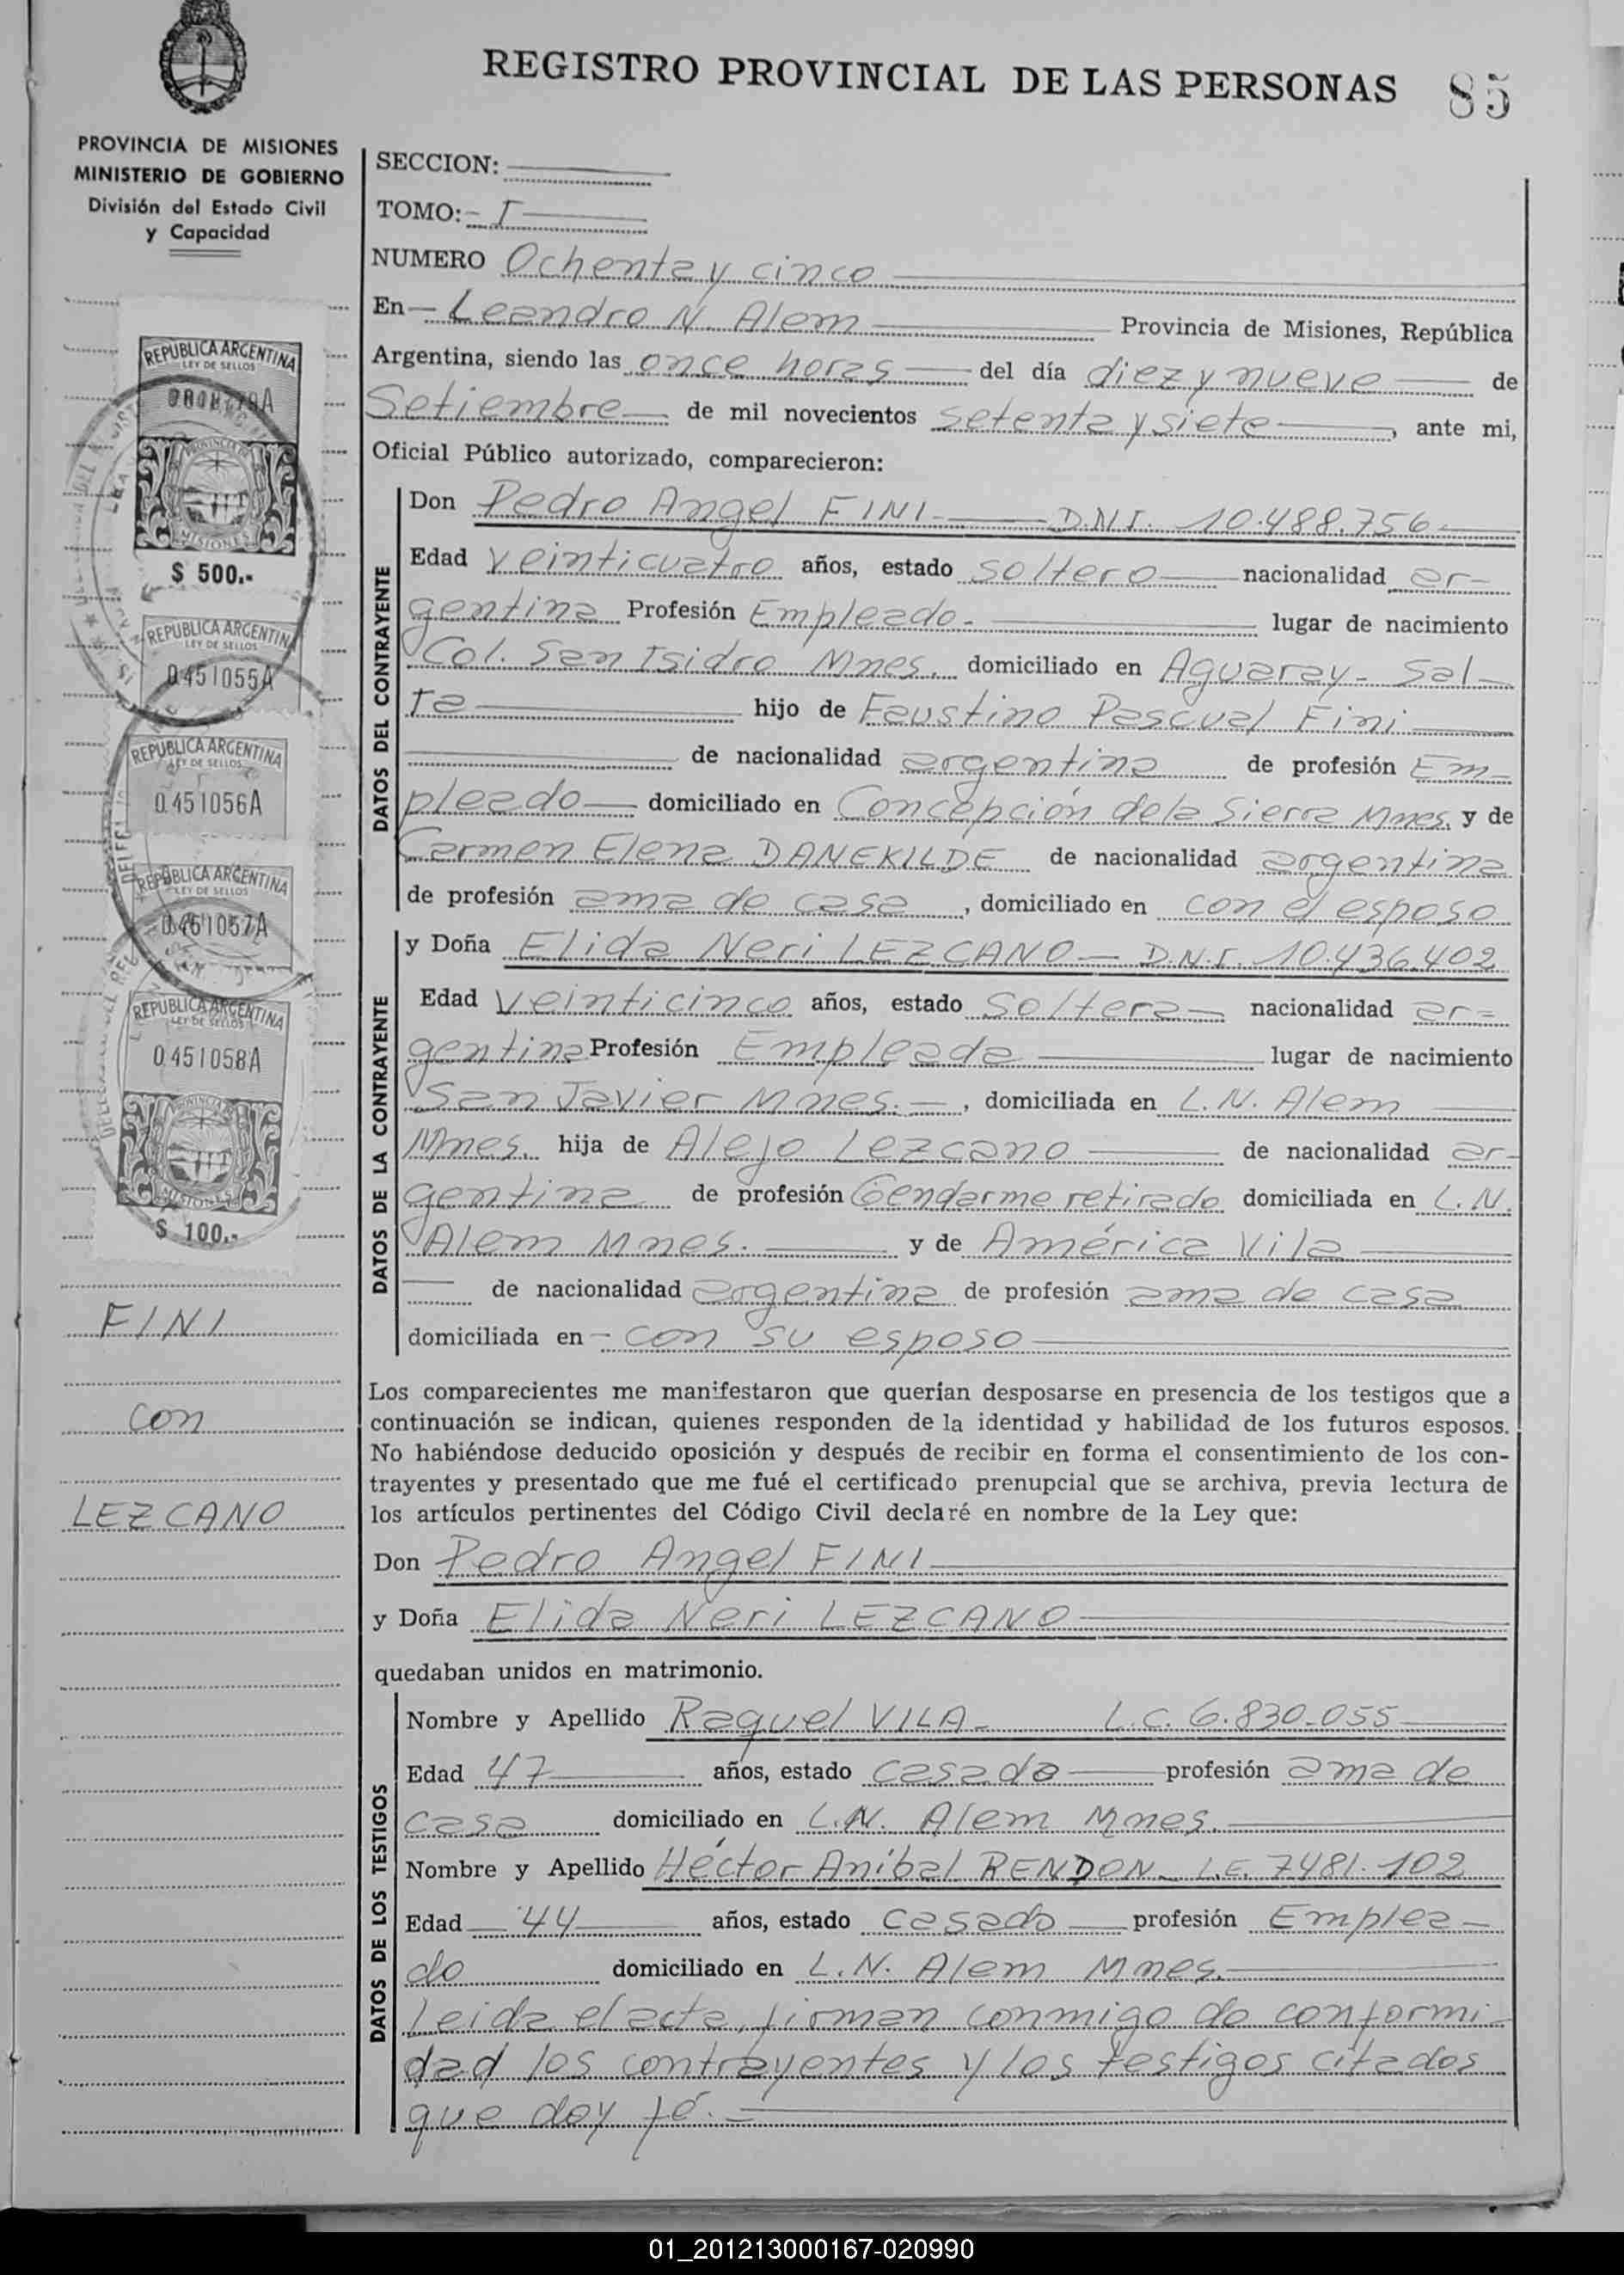 REGISTRO PROVINCIAL DE LAS PERSONAS 85
PROVINCIA DE MISIONES
MINISTERIO DE GOBIERNO
División del Estado Civil
y Capacidad
REPUBLICA ARGENTINA
LEY DE SELLOS
PROVINCIA DE
MISIONES
$ 500.-
REPUBLICA ARGENTINA
LEY DE SELLOS
0.451055A
REPUBLICA ARGENTINA
LEY DE SELLOS
0.451056A
REPUBLICA ARGENTINA
LEY DE SELLOS
0.451057A
REPUBLICA ARGENTINA
LEY DE SELLOS
0.451058A
PROVINCIA DE
MISIONES
$ 100.-
FINI
con
LEZCANO
SECCION:
TOMO:- I
NUMERO Ochenta y cinco
En - Leandro N. Alem Provincia de Misiones, República
Argentina, siendo las once horas del día diez y nueve de
Setiembre de mil novecientos setenta y siete, ante mi,
Oficial Público autorizado, comparecieron:
DATOS DEL CONTRAYENTE
Don Pedro Angel FINI - D.N.I. 10.488.756
Edad veinticuatro años, estado soltero nacionalidad ar-
gentina Profesión Empleado. lugar de nacimiento
Col. San Isidro Mnes. domiciliado en Aguaray - Sal-
ta hijo de Faustino Pascual Fini
de nacionalidad argentina de profesión Em-
pleado domiciliado en Concepción de la Sierra Mnes. y de
Carmen Elena DANEKILDE de nacionalidad argentina
de profesión ama de casa, domiciliado en con el esposo
DATOS DE LA CONTRAYENTE
y Doña Elida Neri LEZCANO - D.N.I. 10.436.402
Edad veinticinco años, estado soltera nacionalidad ar=
gentina Profesión Empleada lugar de nacimiento
San Javier Mnes. -, domiciliada en L.N. Alem
Mnes. hija de Alejo Lezcano de nacionalidad ar-
gentina de profesión Gendarme retirado domiciliada en L.N.
Alem Mnes. y de América Vila
de nacionalidad argentina de profesión ama de casa
domiciliada en - con su esposo
Los comparecientes me manifestaron que querían desposarse en presencia de los testigos que a
continuación se indican, quienes responden de la identidad y habilidad de los futuros esposos.
No habiéndose deducido oposición y después de recibir en forma el consentimiento de los con-
trayentes y presentado que me fué el certificado prenupcial que se archiva, previa lectura de
los artículos pertinentes del Código Civil declaré en nombre de la Ley que:
Don Pedro Angel FINI
y Doña Elida Neri LEZCANO
quedaban unidos en matrimonio.
DATOS DE LOS TESTIGOS
Nombre y Apellido Raquel VILA - L.C. 6.830.055
Edad 47 años, estado casada profesión ama de
casa domiciliado en L.N. Alem Mnes.
Nombre y Apellido Héctor Aníbal RENDON - L.E. 7481.102
Edad 44 años, estado casado profesión Emplea-
do domiciliado en L.N. Alem Mnes.
Leida el acta, firman conmigo de conformi-
dad los contrayentes y los testigos citados
que doy fé. -
01_201213000167-020990